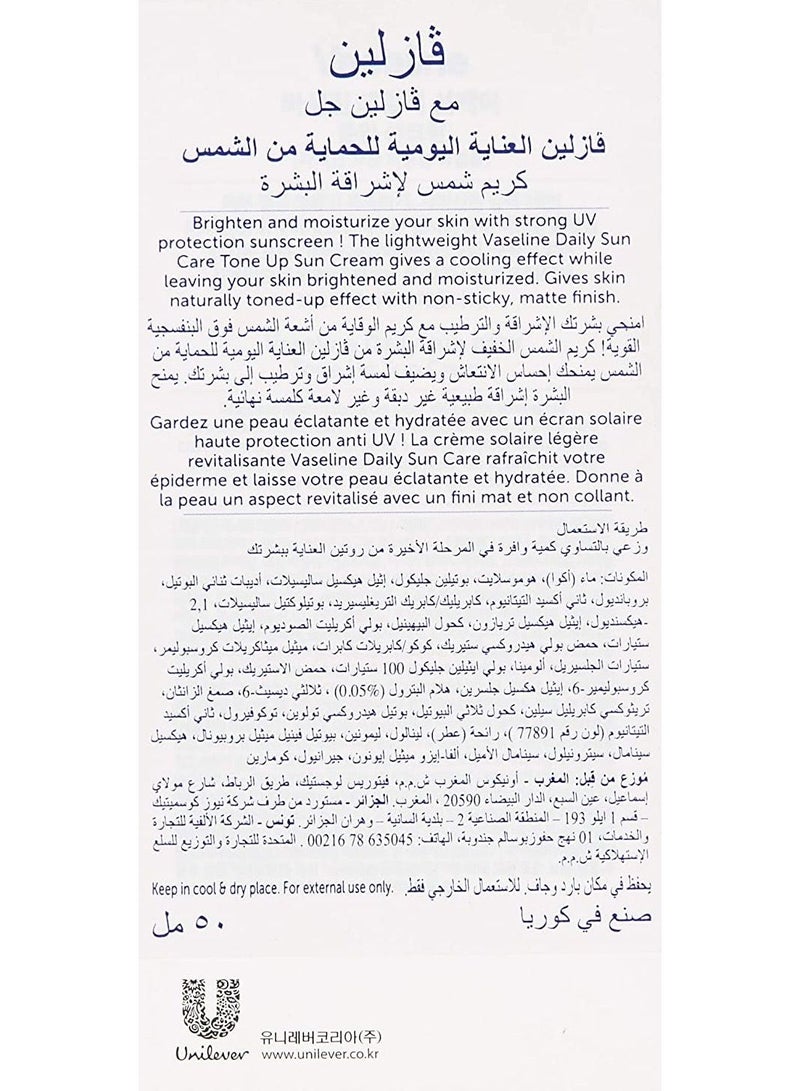 ڤازلين
مع ڤازلين جل
ڤازلين العناية اليومية للحماية من الشمس
كريم شمس لإشراقة البشرة
Brighten and moisturize your skin with strong UV
protection sunscreen ! The lightweight Vaseline Daily Sun
Care Tone Up Sun Cream gives a cooling effect while
leaving your skin brightened and moisturized. Gives skin
naturally toned-up effect with non-sticky, matte finish.
امنحي بشرتك الإشراقة والترطيب مع كريم الوقاية من أشعة الشمس فوق البنفسجية
القوية! كريم الشمس الخفيف لإشراقة البشرة من ڤازلين العناية اليومية للحماية من
الشمس يمنحك إحساس الانتعاش ويضيف لمسة إشراق وترطيب إلى بشرتك. يمنح
البشرة إشراقة طبيعية غير دبقة وغير لامعة كلمسة نهائية.
Gardez une peau éclatante et hydratée avec un écran solaire
haute protection anti UV ! La crème solaire légère
revitalisante Vaseline Daily Sun Care rafraîchit votre
épiderme et laisse votre peau éclatante et hydratée. Donne à
la peau un aspect revitalisé avec un fini mat et non collant.
طريقة الاستعمال
وزعي بالتساوي كمية وافرة في المرحلة الأخيرة من روتين العناية ببشرتك
المكونات: ماء (أكوا)، هوموسلايت، بوتيلين جليكول، إثيل هيكسيل ساليسيلات، أديبات ثنائي البوتيل،
بروبانديول، ثاني أكسيد التيتانيوم، كابريليك/كابريك التريغليسيريد، بوتيلوكتيل ساليسيلات، 2,1
-هيكسنديول، إيثيل هيكسيل تريازون، كحول البيهينيل، بولي أكريليت الصوديوم، إيثيل هيكسيل
ستيارات، حمض بولي هيدروكسي ستيريك، كوكو/كابريلات كابرات، ميثيل ميثاكريلات كروسبوليمر،
ستيارات الجلسيريل، ألومينا، بولي ايثيلين جليكول 100 ستيارات، حمض الاستيريك، بولي أكريليت
كروسبوليمير-6، إيثيل هكسيل جلسرين، هلام البترول (0.05%) ، ثلالثي ديسيث-6، صمغ الزانثان،
تريثوكسي كابريليل سيلين، كحول ثلاثي البيوتيل، بوتيل هيدروكسي تولوين، توكوفيرول، ثاني أكسيد
التيتانيوم (لون رقم 77891 )، رائحة (عطر)، لينالول، ليمونين، بيوتيل فينيل ميثيل بروبيونال، هيكسيل
سينامال، سيترونيلول، سينامال الأميل، ألفا-إيزو ميثيل إيونون، جيرانيول، كومارين
مُوزع من قبل: المغرب - أونيكوس المغرب ش.م.م، فيتوريس لوجستيك، طريق الرباط، شارع مولاي
إسماعيل، عين السبع، الدار البيضاء 20590 ، المغرب. الجزائر - مستورد من طرف شركة نيوز كوسميتيك
– قسم 1 ايلو 193 – المنطقة الصناعية 2 – بلدية السانية – وهران الجزائر. تونس - الشركة الألفية للتجارة
والخدمات، 01 نهج حفوزبوسالم جندوبة، الهاتف: 635045 78 00216 . المتحدة للتجارة والتوزيع للسلع
الإستهلاكية ش.م.م.
يحفظ في مكان بارد وجاف. للاستعمال الخارجي فقط. Keep in cool & dry place. For external use only.
صنع في كوريا
٥٠ مل
유니레버코리아(주)
Unilever www.unilever.co.kr